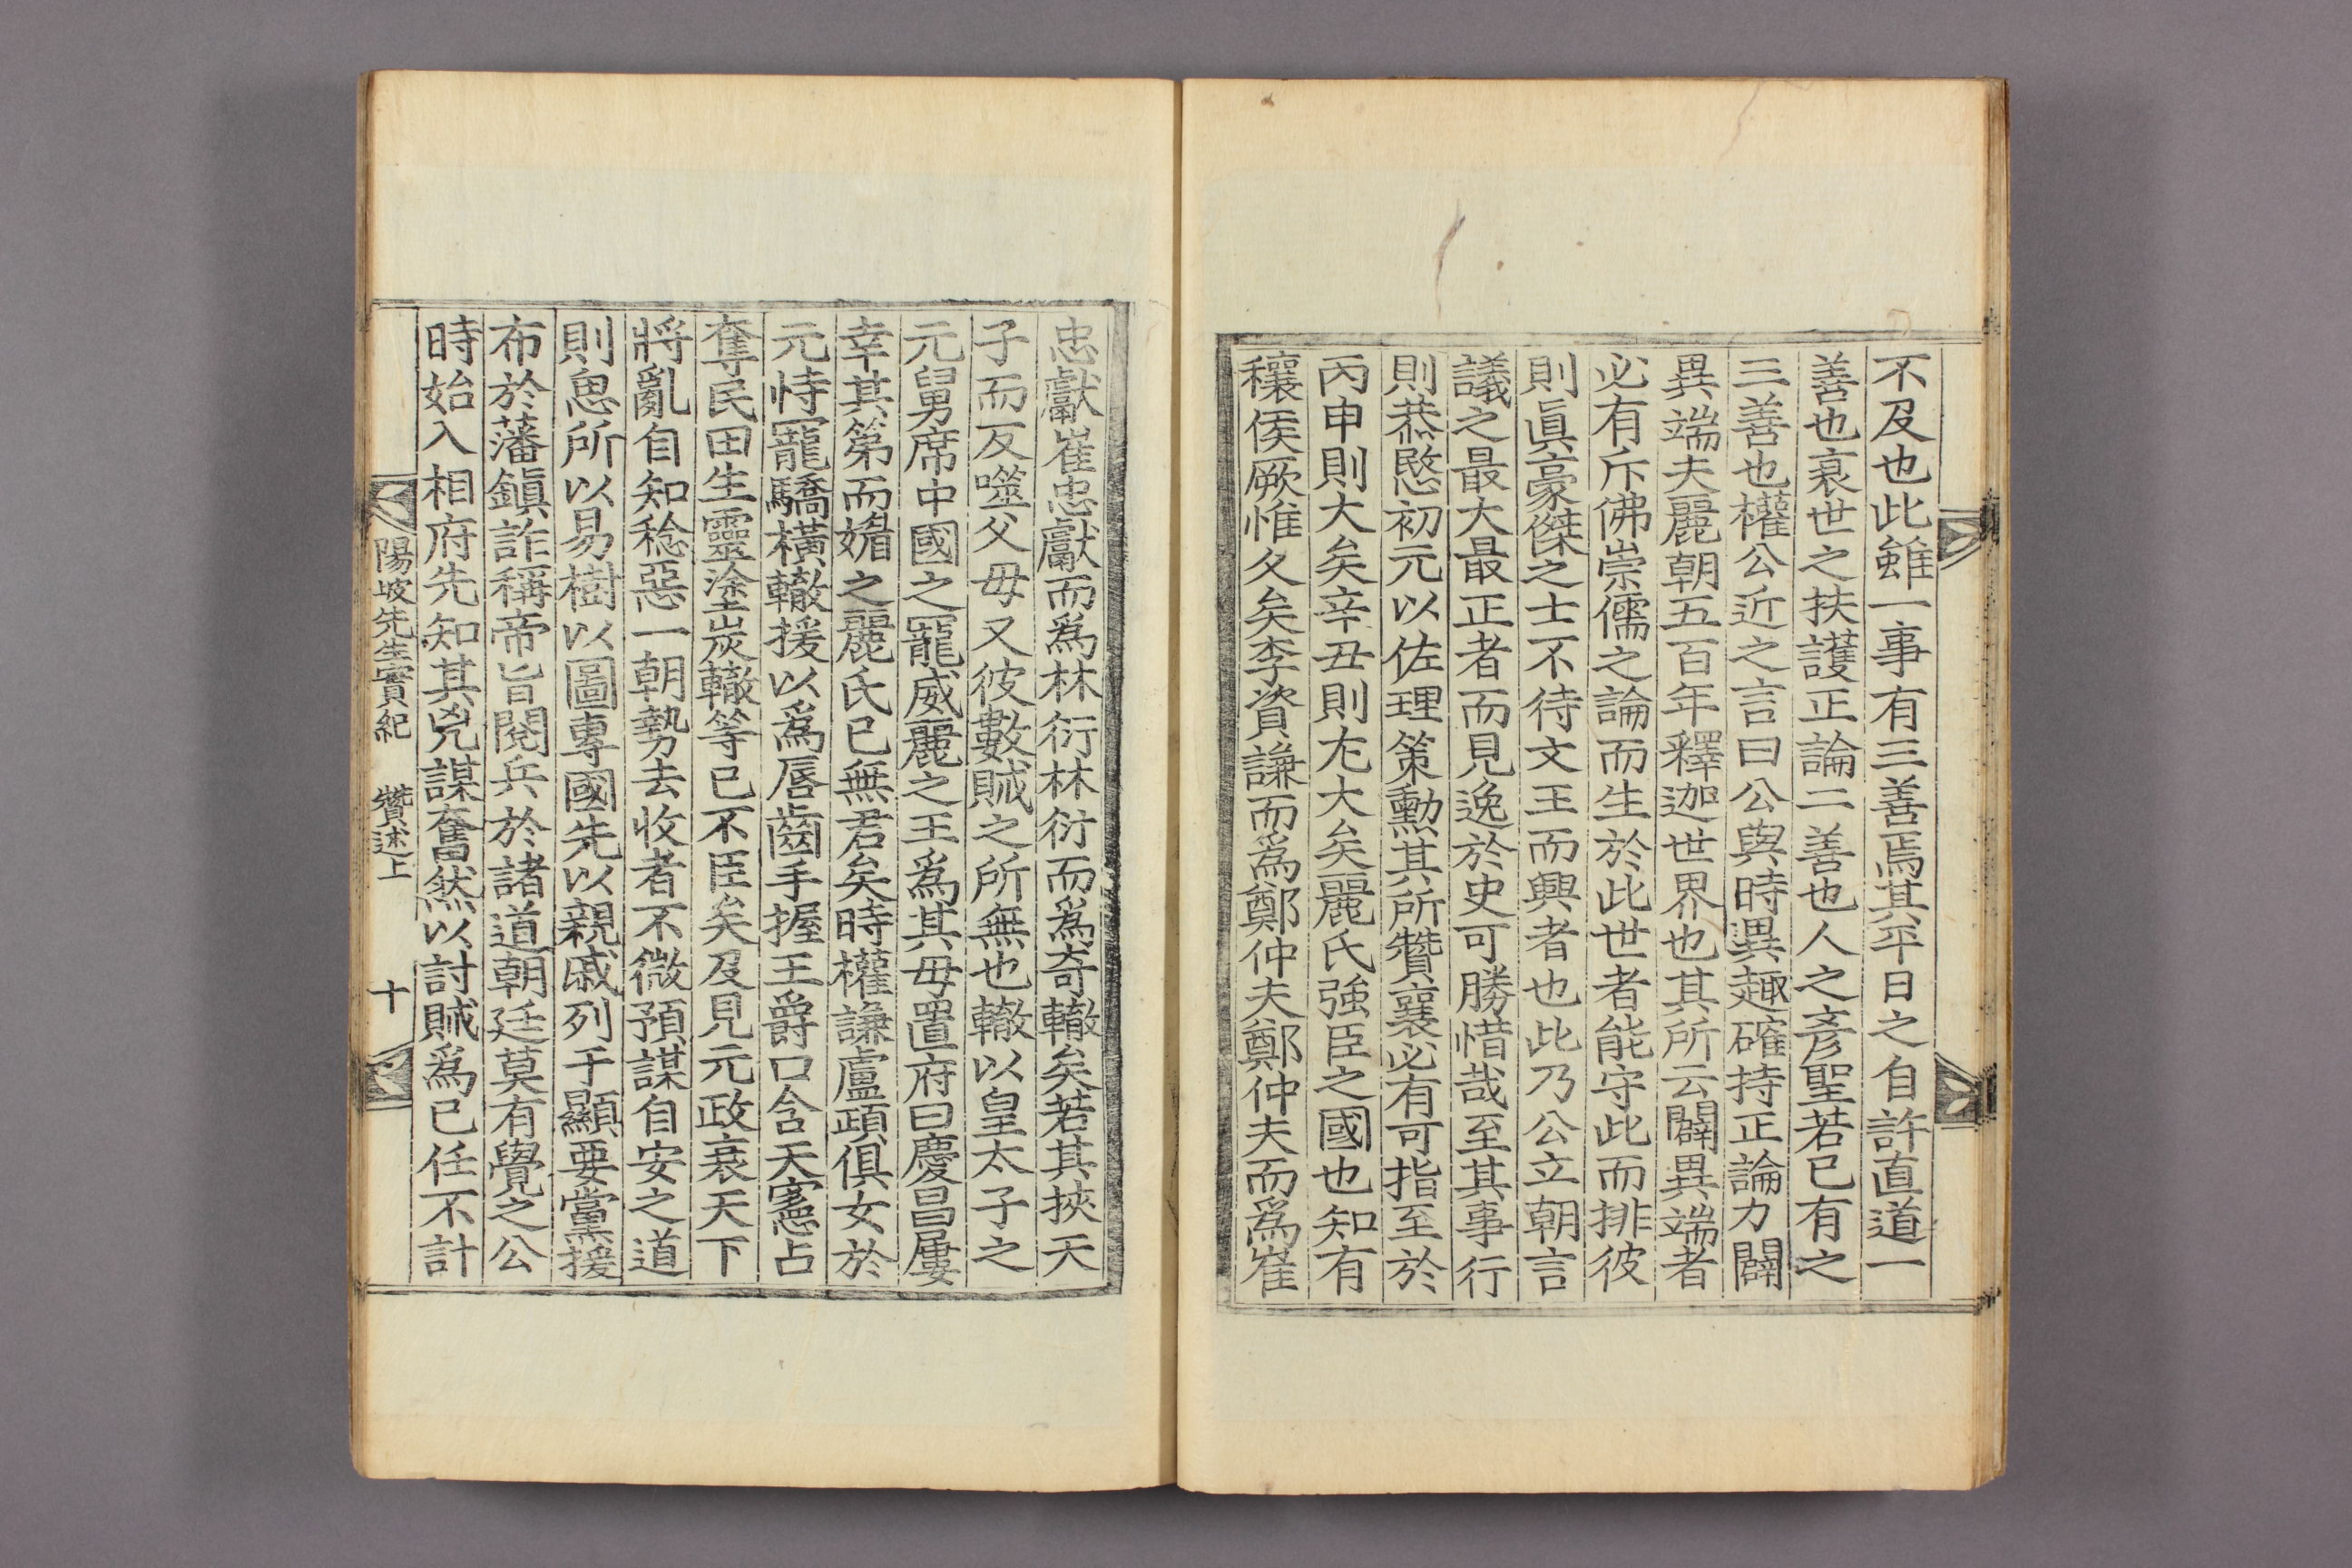 不及也此雖一事有三善焉其平日之自許直道一
善也衰世之扶護正論二善也人之彥聖若己有之
三善也權公近之言曰公與時異趣確持正論力闢
異端夫麗朝五百年釋迦世界也其所云闢異端者
必有斥佛崇儒之論而生於此世者能守此而排彼
則眞豪傑之士不待文王而興者也此乃公立朝言
議之最大最正者而見逸於史可勝惜哉至其事行
則恭愍初元以佐理策勳其所贊襄必有可指至於
丙申則大矣辛丑則尤大矣麗氏強臣之國也知有
穰侯厥惟久矣李資謙而爲鄭仲夫鄭仲夫而爲崔
忠獻崔忠獻而爲林衍林衍而爲奇轍矣若其挾天
子而反噬父母又彼數賊之所無也轍以皇太子之
元舅席中國之寵威麗之王爲其母置府曰慶昌屢
幸其第而媚之麗氏已無君矣時權謙盧頙俱女於
元恃寵驕橫轍援以爲唇齒手握王爵口含天憲占
奪民田生靈塗炭轍等已不臣矣及見元政衰天下
將亂自知稔惡一朝勢去收者不微預謀自安之道
則思所以易樹以圖專國先以親戚列于顯要黨援
布於藩鎭詐稱帝旨閱兵於諸道朝廷莫有覺之公
時始入相府先知其兇謀奮然以討賊爲已任不計
陽坡先生實紀 贊述上 十